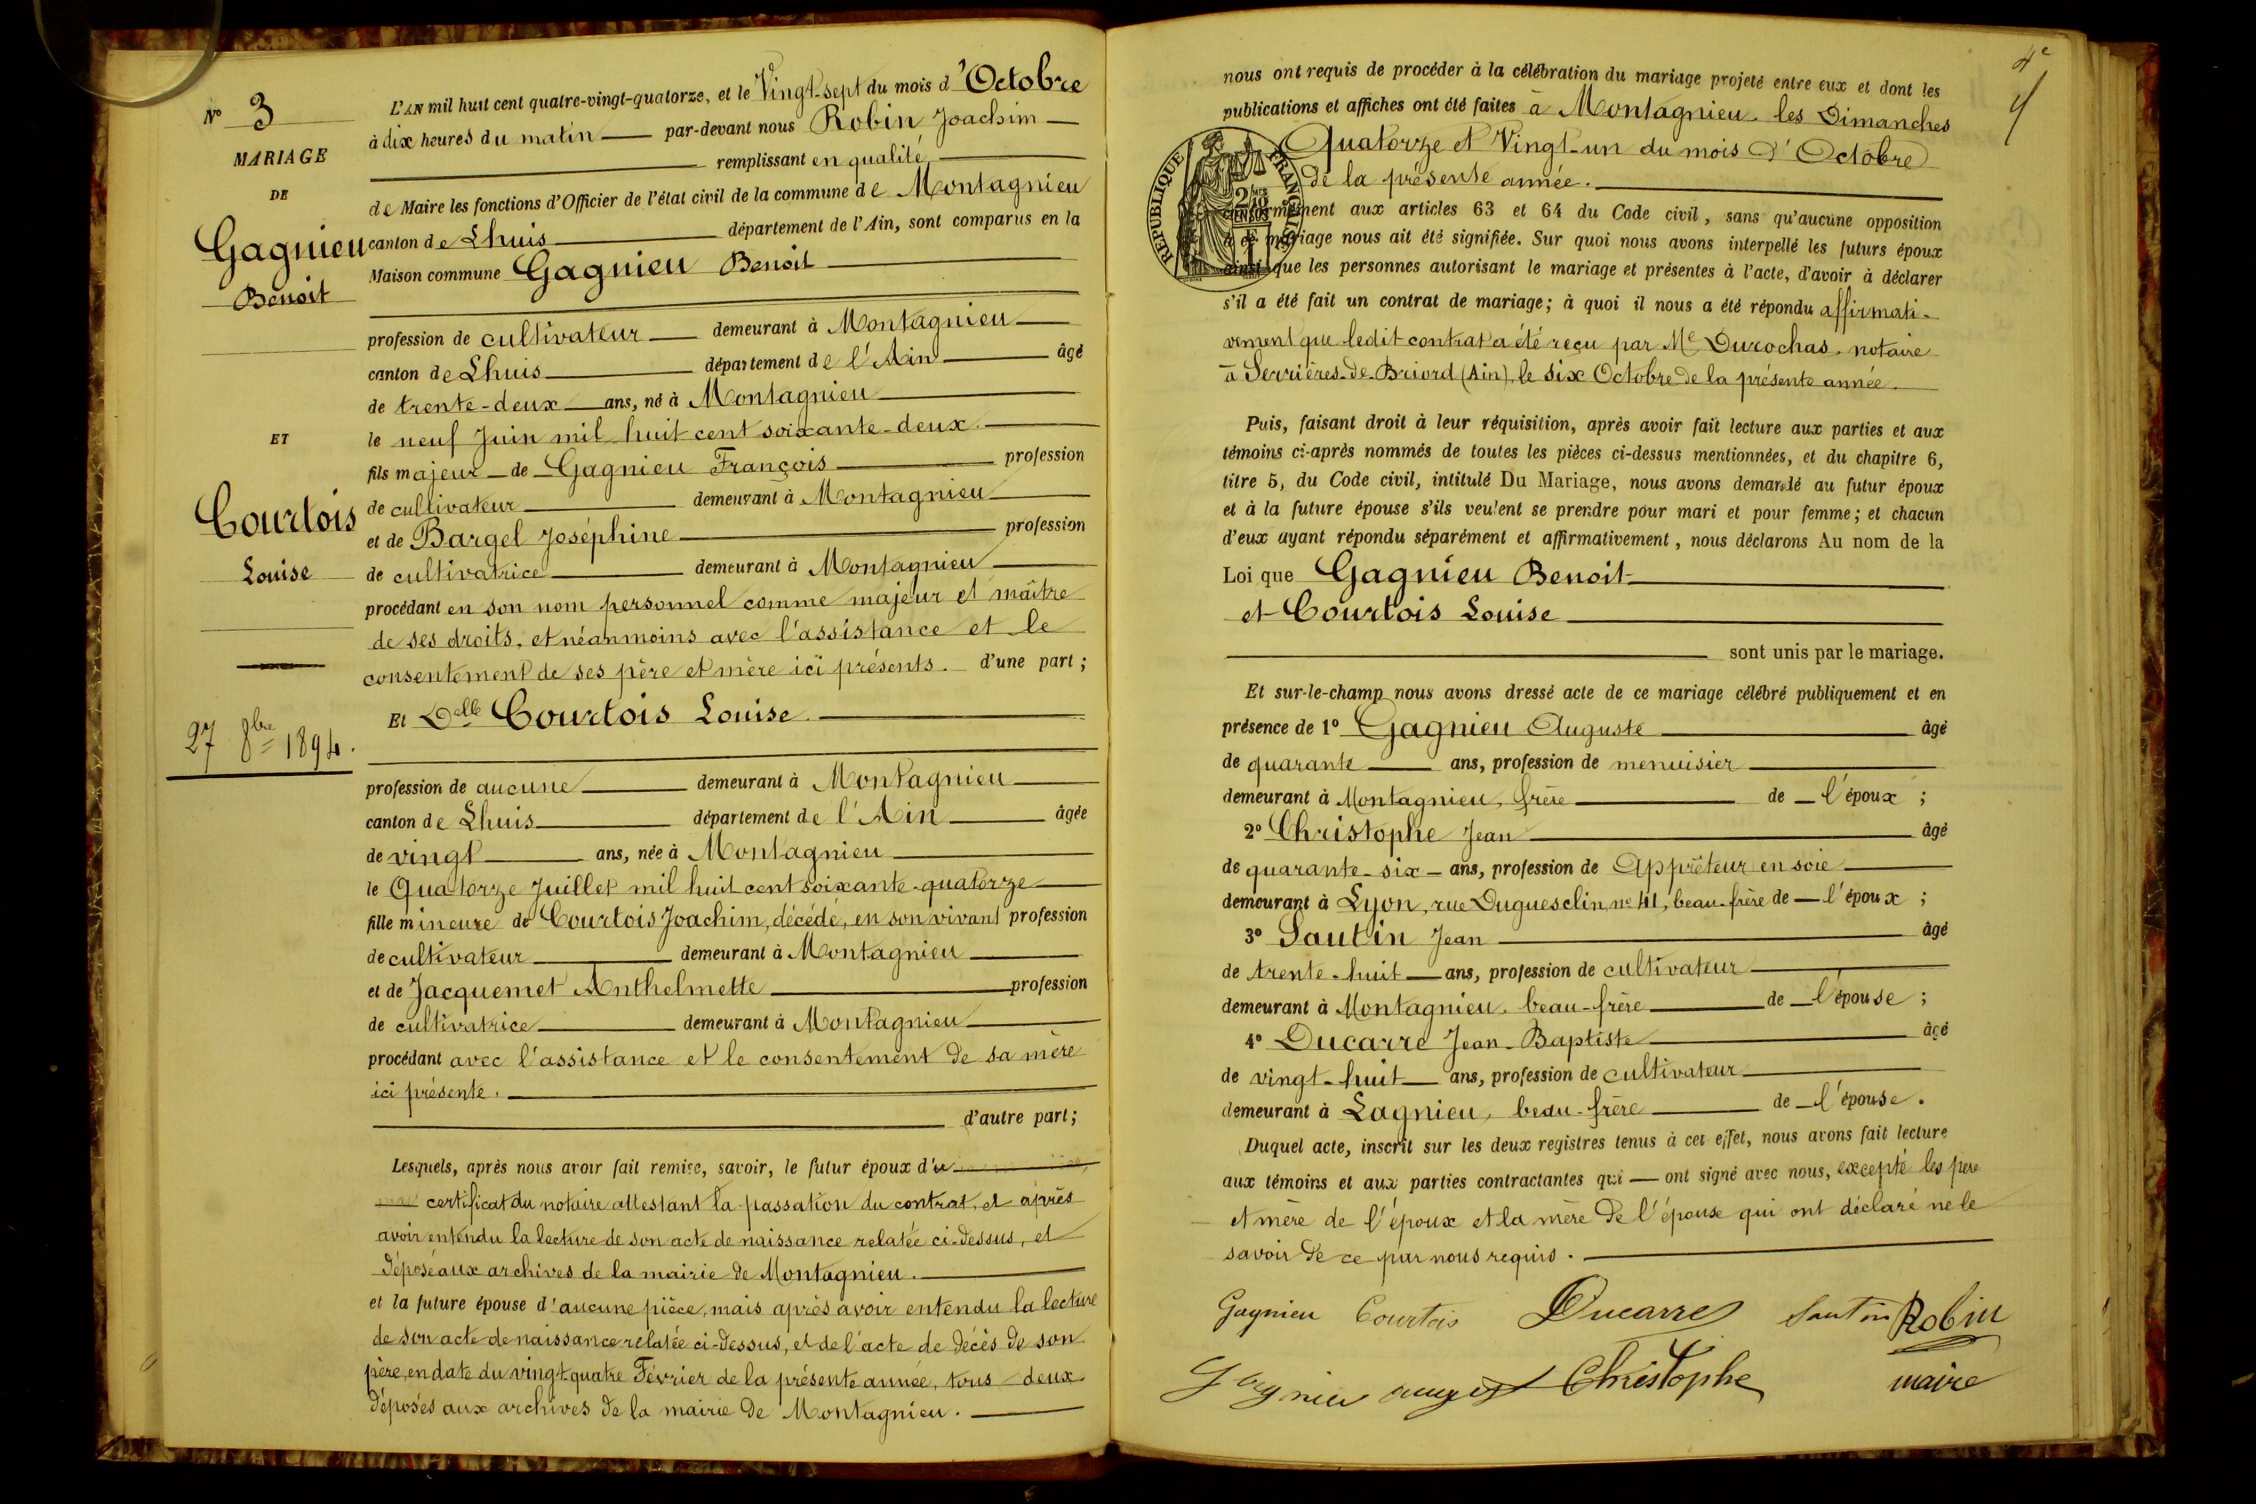 N° 3
MARIAGE
DE
Gagnieu
Benoit
ET
Courtois
Louise
27 8bre 1894.
L'AN mil huit cent quatre-vingt-quatorze, et le Vingt-sept du mois d'Octobre
à dix heures du matin par-devant nous Robin Joachim
remplissant en qualité
de Maire les fonctions d'Officier de l'état civil de la commune de Montagnieu
canton de Lhuis département de l'Ain, sont comparus en la
Maison commune Gagnieu Benoit
profession de cultivateur demeurant à Montagnieu
canton de Lhuis département de l'Ain âgé
de trente-deux ans, né à Montagnieu
le neuf Juin mil huit cent soixante-deux.
fils majeur de Gagnieu François profession
de cultivateur demeurant à Montagnieu
et de Bargel Joséphine profession
de cultivatrice demeurant à Montagnieu
procédant en son nom personnel comme majeur et maître
de ses droits, et néanmoins avec l'assistance et le
consentement de ses père et mère ici présents. d'une part ;
Et Delle Courtois Louise.
profession de aucune demeurant à Montagnieu
canton de Lhuis département de l'Ain âgée
de vingt ans, née à Montagnieu
le Quatorze Juillet mil huit cent soixante-quatorze
fille mineure de Courtois Joachim, décédé, en son vivant profession
de cultivateur demeurant à Montagnieu
et de Jacquemet Anthelmette profession
de cultivatrice demeurant à Montagnieu
procédant avec l'assistance et le consentement de sa mère
ici présente.
d'autre part ;
Lesquels, après nous avoir fait remise, savoir, le futur époux d'u
certificat du notaire attestant la passation du contrat, et après
avoir entendu la lecture de son acte de naissance relatée ci-dessus, et
déposé aux archives de la mairie de Montagnieu.
et la future épouse d'aucune pièce, mais après avoir entendu la lecture
de son acte de naissance relatée ci-dessus, et de l'acte de décès de son
père, en date du vingt-quatre Février de la présente année, tous deux
déposés aux archives de la mairie de Montagnieu.
4e
nous ont requis de procéder à la célébration du mariage projeté entre eux et dont les
publications et affiches ont été faites à Montagnieu les Dimanches
Quatorze et Vingt-un du mois d'Octobre
de la présente année.
REPUBLIQUE FRANÇAISE
conformément aux articles 63 et 64 du Code civil, sans qu'aucune opposition
à ce mariage nous ait été signifiée. Sur quoi nous avons interpellé les futurs époux
ainsi que les personnes autorisant le mariage et présentes à l'acte, d'avoir à déclarer
s'il a été fait un contrat de mariage ; à quoi il nous a été répondu affirmati-
vement que ledit contrat a été reçu par Me Durochas, notaire
à Serrières-de-Briord (Ain), le six Octobre de la présente année.
Puis, faisant droit à leur réquisition, après avoir fait lecture aux parties et aux
témoins ci-après nommés de toutes les pièces ci-dessus mentionnées, et du chapitre 6,
titre 5, du Code civil, intitulé Du Mariage, nous avons demandé au futur époux
et à la future épouse s'ils veulent se prendre pour mari et pour femme ; et chacun
d'eux ayant répondu séparément et affirmativement, nous déclarons Au nom de la
Loi que Gagnieu Benoit
et Courtois Louise
sont unis par le mariage.
Et sur-le-champ nous avons dressé acte de ce mariage célébré publiquement et en
présence de 1° Gagnieu Auguste âgé
de quarante ans, profession de menuisier
demeurant à Montagnieu, frère de l'époux ;
2° Christophe Jean âgé
de quarante-six ans, profession de Apprêteur en soie
demeurant à Lyon, rue Duguesclin, n° 41, beau-frère de l'époux ;
3° Sautin Jean âgé
de trente-huit ans, profession de cultivateur
demeurant à Montagnieu, beau-frère de l'épouse ;
4° Ducarre Jean-Baptiste âgé
de vingt-huit ans, profession de cultivateur
demeurant à Lagnieu, beau-frère de l'épouse.
Duquel acte, inscrit sur les deux registres tenus à cet effet, nous avons fait lecture
aux témoins et aux parties contractantes qui ont signé avec nous, excepté les père
et mère de l'époux et la mère de l'épouse qui ont déclaré ne le
savoir de ce par nous requis.
Gagnieu Courtois Ducarre Sautin Robin
Gagnieu auguste Christophe maire